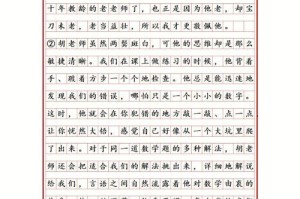 十年教龄的老老师了，也正是因为他老，却宝
刀未老，老当益壮，所以我才更敬佩他。
②胡老师虽然两鬓斑白，可他的思维却是那么
敏捷清晰。我们在课上做练习的时候，他背着
手、踱着方步一个一个地检查。他总是能迅速地
发现我们的错误，哪怕只是一个小小的数字。
这时，他就会在你犯错的地方敲一敲、点一点
让你恍然大悟，感觉自己好像从一个大坑里爬
了出来。对于同一道数学题的多种解法，胡老
师还会把适合我们的解法挑出来，详细地解说
给我们。言语之间自然流露着他对数学由真的